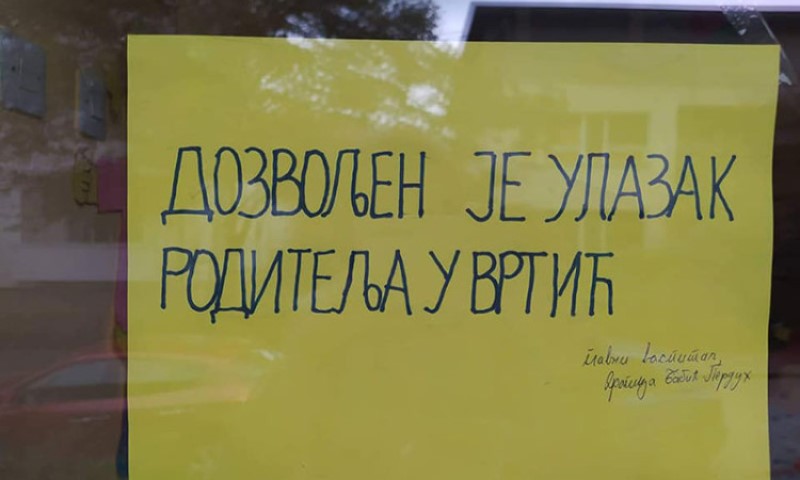 ДОЗВОЉЕН ЈЕ УЛАЗАК
РОДИТЕЉА У ВРТИЋ
главни васпитач,
Бабић